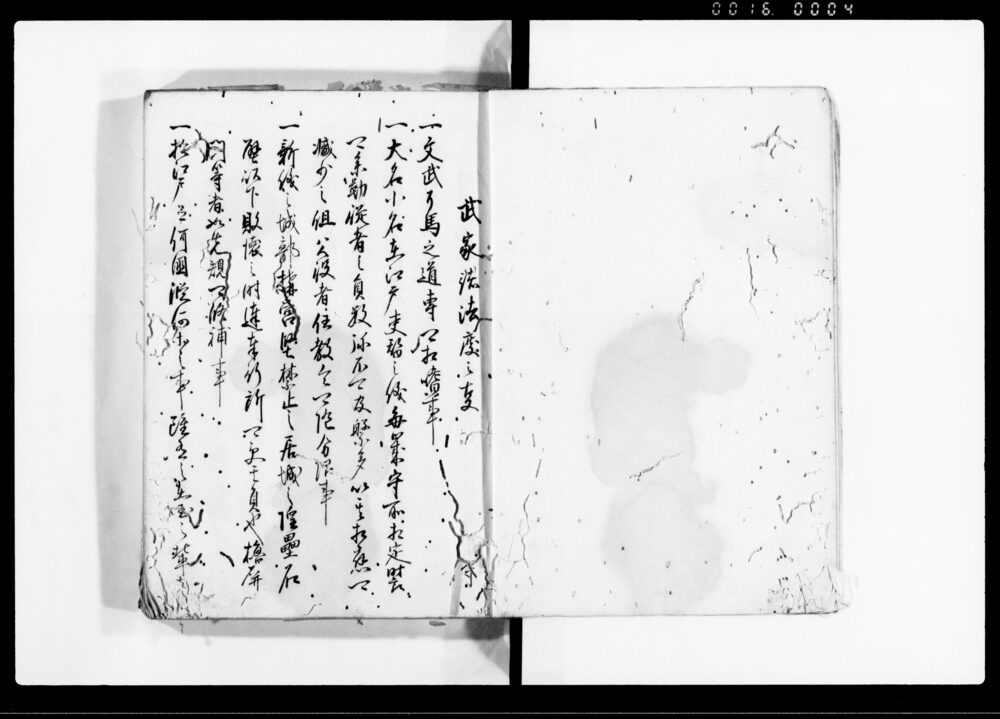 0016 0004
武家諸法度之事
一文武弓馬之道専可相嗜事
一大名小名在江戸交替之儀毎歳守所相定時
可参勤従者之員数弥不可及繁多以其相応可
減少之但公役者任教令可随分限事
一新儀之城郭構営堅禁止之居城之隍塁石
壁以下敗壊之時達奉行所可受其旨也櫓屏
門等者如先規可修補事
一於江戸并何国縦何等之事雖有之在国之輩